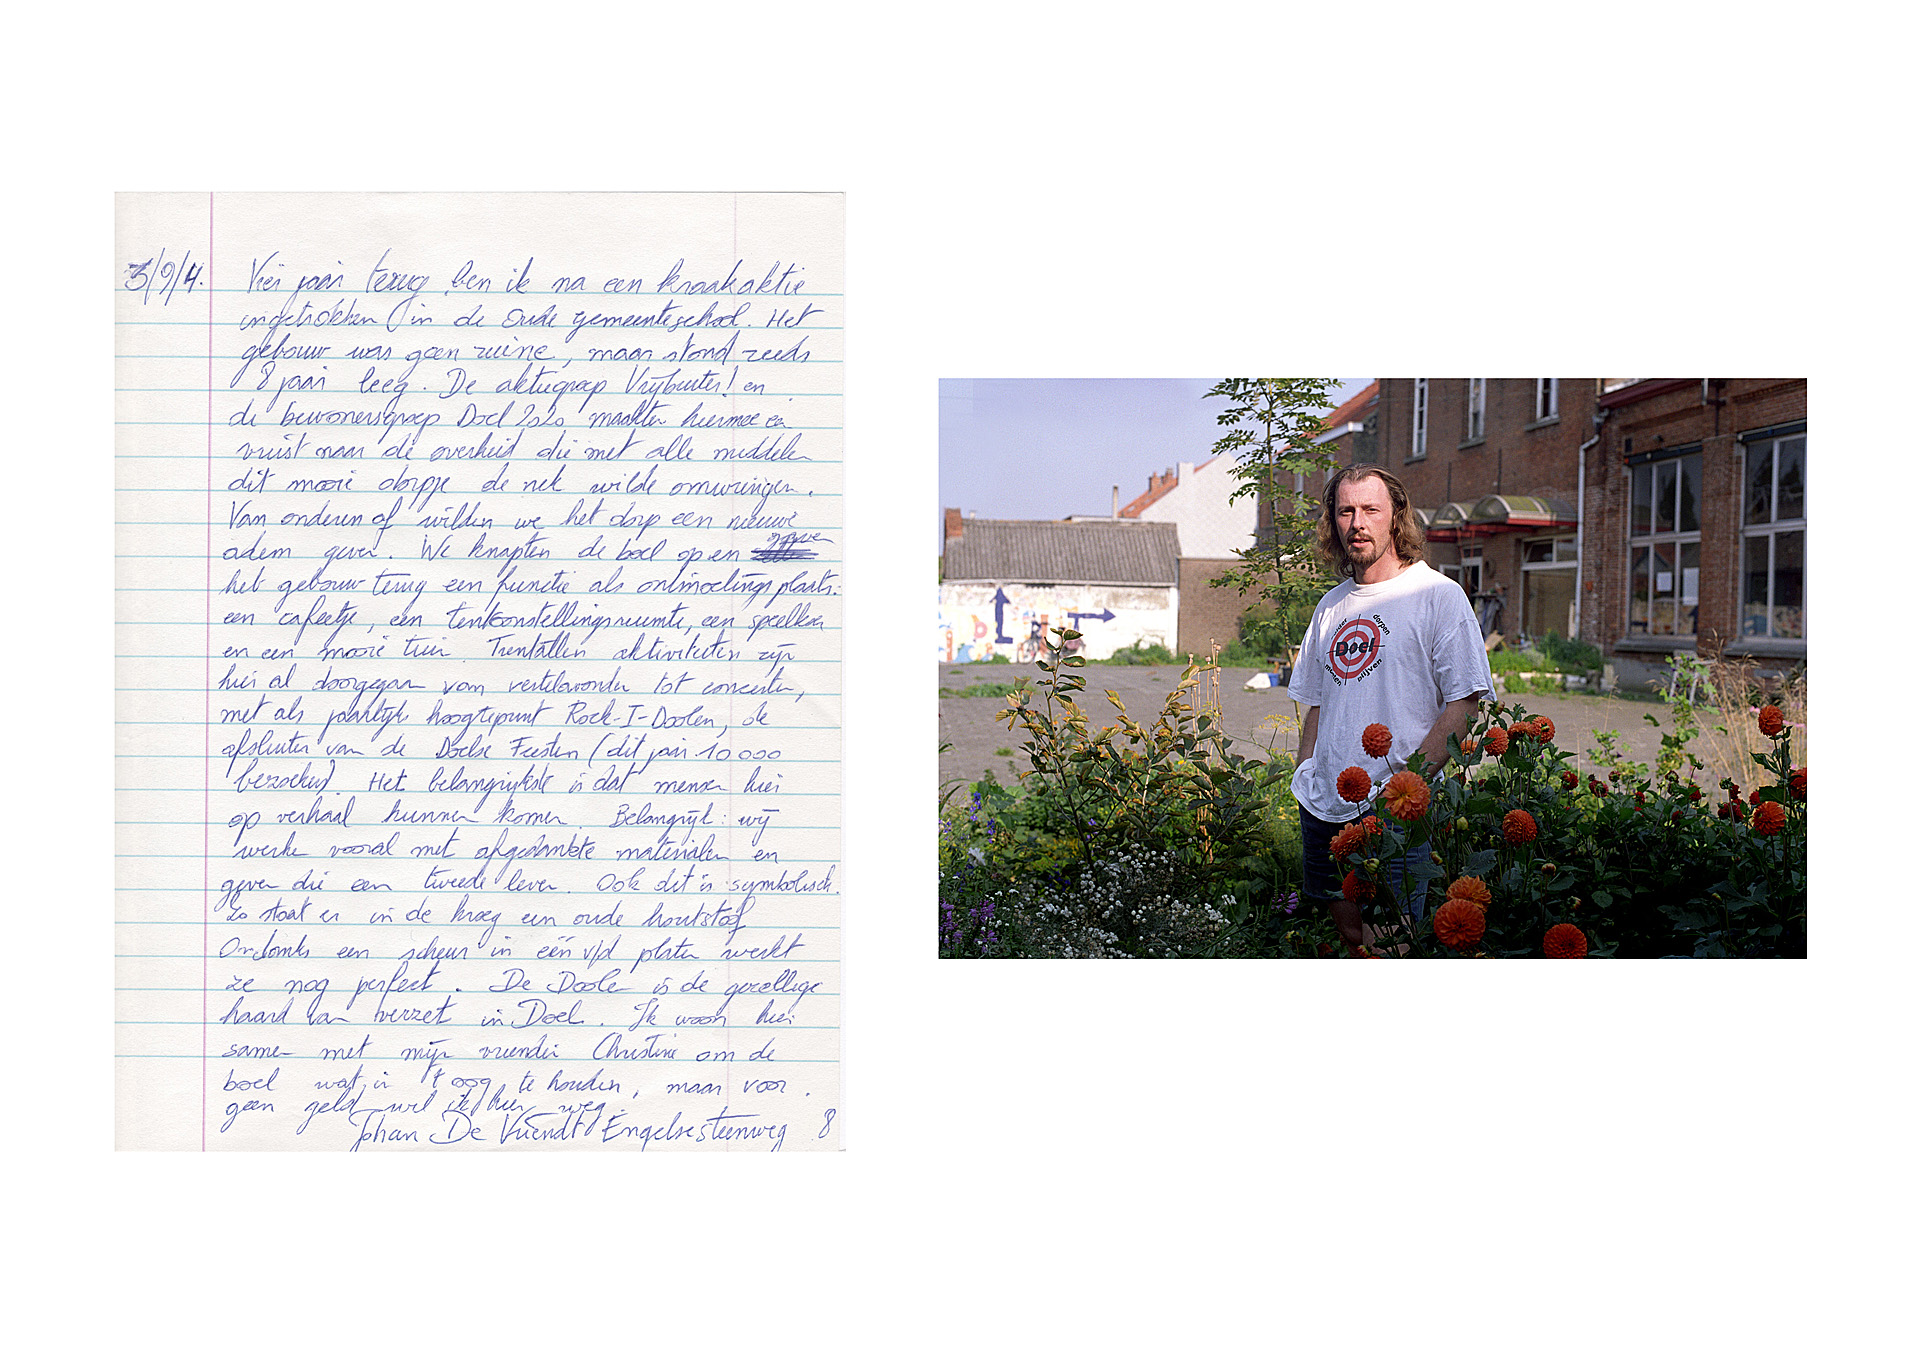 3/9/4. Vier jaar terug ben ik na een kraakaktie
ingetrokken in de Oude gemeenteschool. Het
gebouw was geen ruïne, maar stond reeds
8 jaar leeg. De aktiegroep Vrijbuiter! en
de bewonersgroep Doel 2020 maakten hiermee een
vuist naar de overheid die met alle middelen
dit mooie dorpje de nek wilde omwringen.
Van onderen af wilden we het dorp een nieuwe
adem geven. We knapten de boel op en gaven
het gebouw terug een functie als ontmoetingsplaats:
een cafeetje, een tentoonstellingsruimte, een
en een mooie tuin. Tientallen aktiviteiten zijn
hier al doorgegaan van vertelavonden tot concerten,
met als jaarlijks hoogtepunt Rock-I-Doolen, de
afsluiter van de Doelse Feesten (dit jaar 10 000
bezoekers). Het belangrijkste is dat mensen hier
op verhaal kunnen komen. Belangrijk: wij
werken vooral met afgedankte materialen en
geven die een tweede leven. Ook dit is symbolisch.
Zo staat er in de kroeg een oude houtstoof
Ondanks een scheur in één v/d platen werkt
ze nog perfect. De Doolen is de gezellige
haard van verzet in Doel. Ik woon hier
samen met mijn vriendin Christine om de
boel wat in 't oog te houden, maar voor
geen geld wil ik hier weg.
Johan De Vriendt Engelsesteenweg 8
Doel
dorpen
moeten
blijven